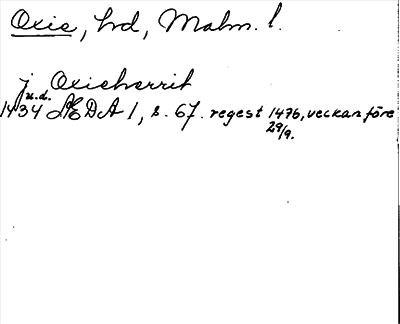 Oxie, hd, Malm. l.
j Oxiehærrit
u.d.
1434 ÆDA 1, s. 67. regest 1476, veckan före
29/9.